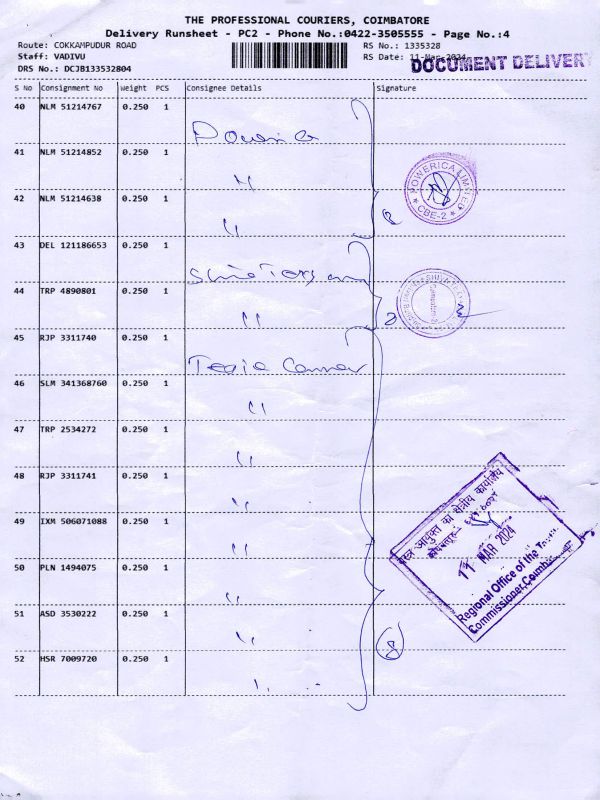 THE PROFESSIONAL COURIERS, COIMBATORE
Delivery Runsheet - PC2 - Phone No.:0422-3505555 - Page No.:4
Route: COKKAMPUDUR ROAD
RS No.: 1335328
Staff: VADIVU
RS Date: 11-Mar-2024
DRS No.: DCJB133532804
DOCUMENT DELIVERY
S No Consignment No Weight PCS Consignee Details Signature
40 NLM 51214767 0.250 1
41 NLM 51214852 0.250 1 "
42 NLM 51214638 0.250 1 "
POWERICA LIMITED
CBE-2
43 DEL 121186653 0.250 1
44 TRP 4890801 0.250 1 "
2
45 RJP 3311740 0.250 1
46 SLM 341368760 0.250 1 "
47 TRP 2534272 0.250 1 "
48 RJP 3311741 0.250 1 "
49 IXM 506071088 0.250 1 "
50 PLN 1494075 0.250 1 "
51 ASD 3530222 0.250 1 "
52 HSR 7009720 0.250 1 "
8
का क्षेत्रीय कार्यालय
11 MAR 2024
Regional Office of the
Commissioner, Coimbatore